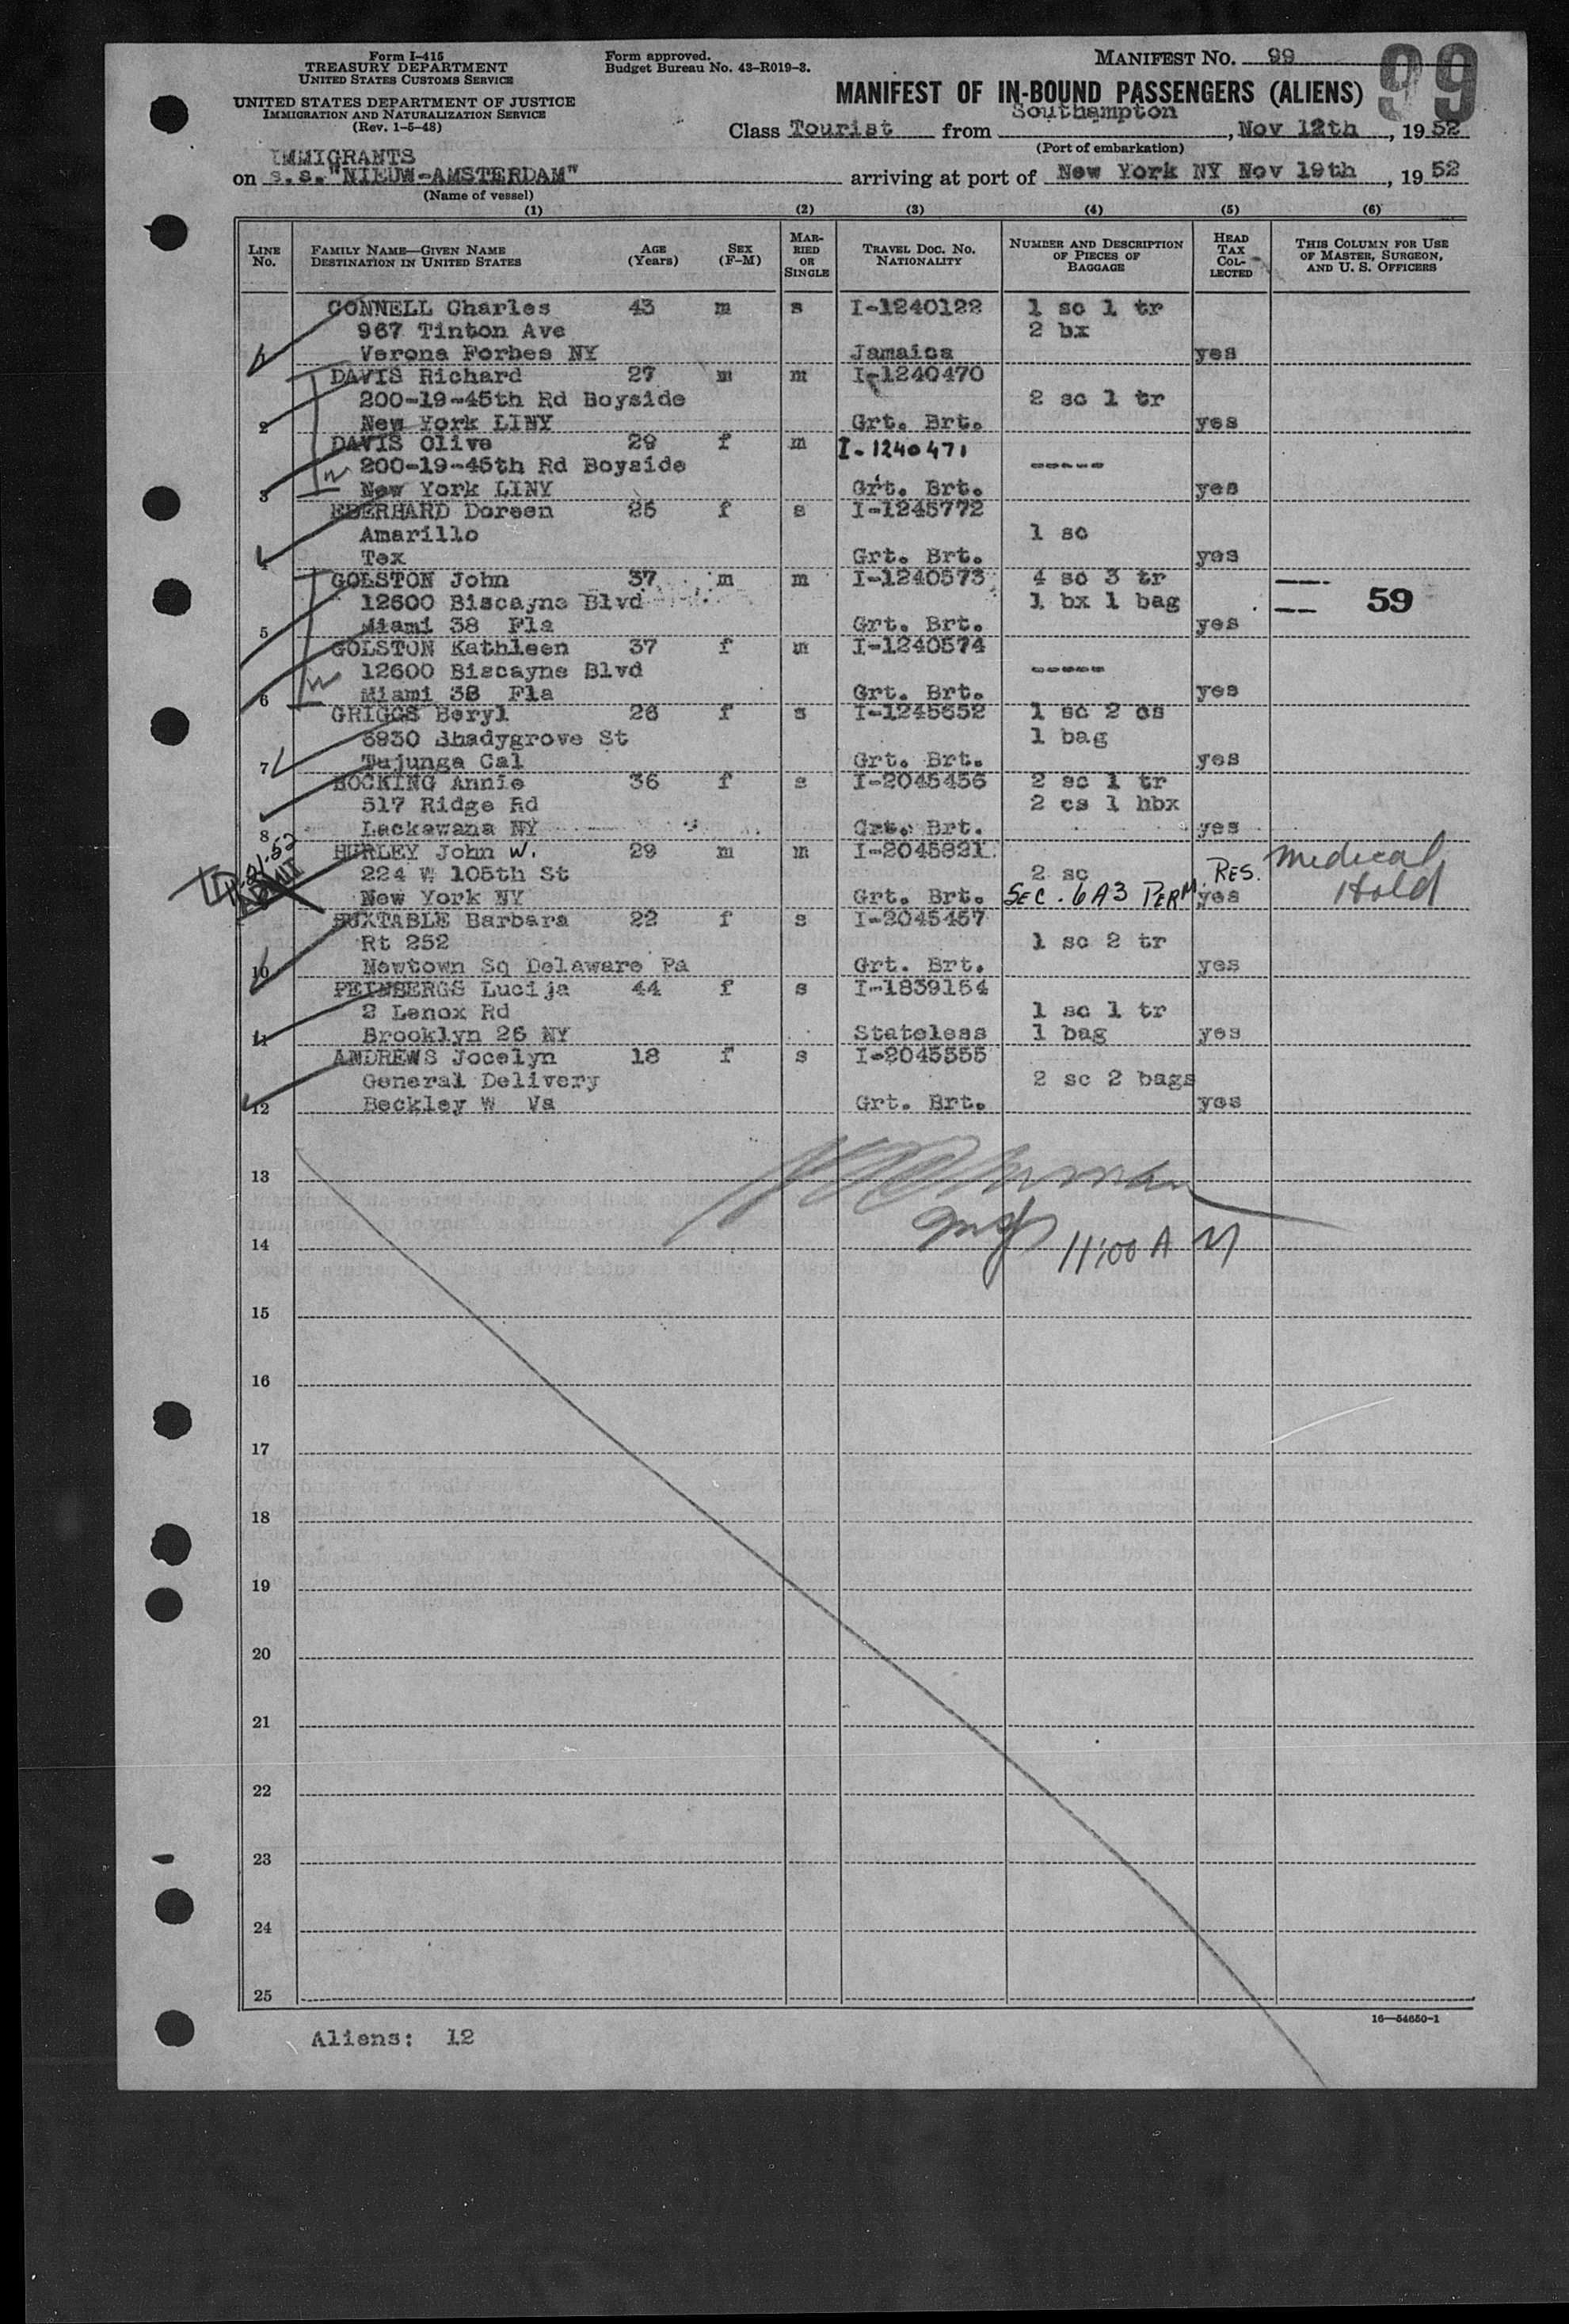 Form I-415
TREASURY DEPARTMENT
UNITED STATES CUSTOMS SERVICE
UNITED STATES DEPARTMENT OF JUSTICE
IMMIGRATION AND NATURALIZATION SERVICE
(Rev. 1-5-48)
Form approved.
Budget Bureau No. 43-R019-3.
MANIFEST NO. 99
99
MANIFEST OF IN-BOUND PASSENGERS (ALIENS)
Class Tourist from Southampton, Nov 12th, 1952
(Port of embarkation)
IMMIGRANTS
on s.s. "NIEUW-AMSTERDAM" arriving at port of New York NY Nov 19th, 1952
(Name of vessel)
(1) (2) (3) (4) (5) (6)
LINE NO. FAMILY NAME—GIVEN NAME DESTINATION IN UNITED STATES AGE (Years) SEX (F-M) MARRIED OR SINGLE TRAVEL DOC. NO. NATIONALITY NUMBER AND DESCRIPTION OF PIECES OF BAGGAGE HEAD TAX COLLECTED THIS COLUMN FOR USE OF MASTER, SURGEON, AND U. S. OFFICERS
CONNELL Charles 43 m s I-1240122 1 sc 1 tr
967 Tinton Ave 2 bx
1 Verona Forbes NY Jamaica yes
DAVIS Richard 27 m m I-1240470
200-19-45th Rd Boyside 2 sc 1 tr
2 New York LINY Grt. Brt. yes
DAVIS Olive 29 f m I-1240471
200-19-45th Rd Boyside -----
3 New York LINY Grt. Brt. yes
EBERHARD Doreen 25 f s I-1245772
Amarillo 1 sc
4 Tex Grt. Brt. yes
GOLSTON John 37 m m I-1240573 4 sc 3 tr
12600 Biscayne Blvd 1 bx 1 bag 59
5 Miami 38 Fla Grt. Brt. yes
GOLSTON Kathleen 37 f m I-1240574
12600 Biscayne Blvd -----
6 Miami 38 Fla Grt. Brt. yes
GRIGGS Beryl 26 f s I-1245652 1 sc 2 cs
6930 Shadygrove St 1 bag
7 Tujunga Cal Grt. Brt. yes
HOCKING Annie 36 f s I-2045456 2 sc 1 tr
517 Ridge Rd 2 cs 1 hbx
8 Lackawana NY Grt. Brt. yes
HURLEY John W. 29 m m I-2045821 Medical
224 W 105th St 2 sc RES. Hold
New York NY Grt. Brt. SEC. 6A3 PERM. yes
11.21.52
ADMIT
HUXTABLE Barbara 22 f s I-2045457
Rt 252 1 sc 2 tr
10 Newtown Sq Delaware Pa Grt. Brt. yes
FEINBERGS Lucija 44 f s I-1839154
2 Lenox Rd 1 sc 1 tr
11 Brooklyn 26 NY Stateless 1 bag yes
ANDREWS Jocelyn 18 f s I-2045555
General Delivery 2 sc 2 bags
12 Beckley W Va Grt. Brt. yes
13
14
11:00 A M
15
16
17
18
19
20
21
22
23
24
25
16—54650-1
Aliens: 12